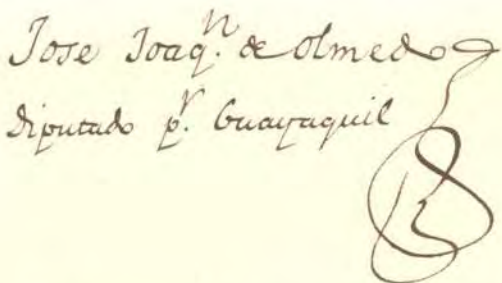 Jose Joaq.n de Olmedo
diputado p.r Guayaquil